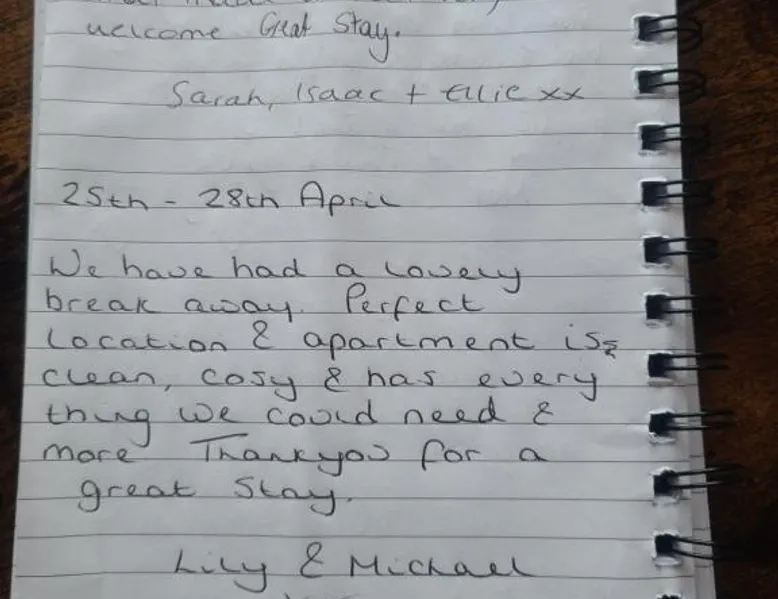 welcome Great Stay.
Sarah, Isaac + Ellie xx
25th - 28th April
We have had a lovely
break away. Perfect
location & apartment is
clean, cosy & has every
thing we could need &
more Thankyou for a
great Stay.
Lily & Michael